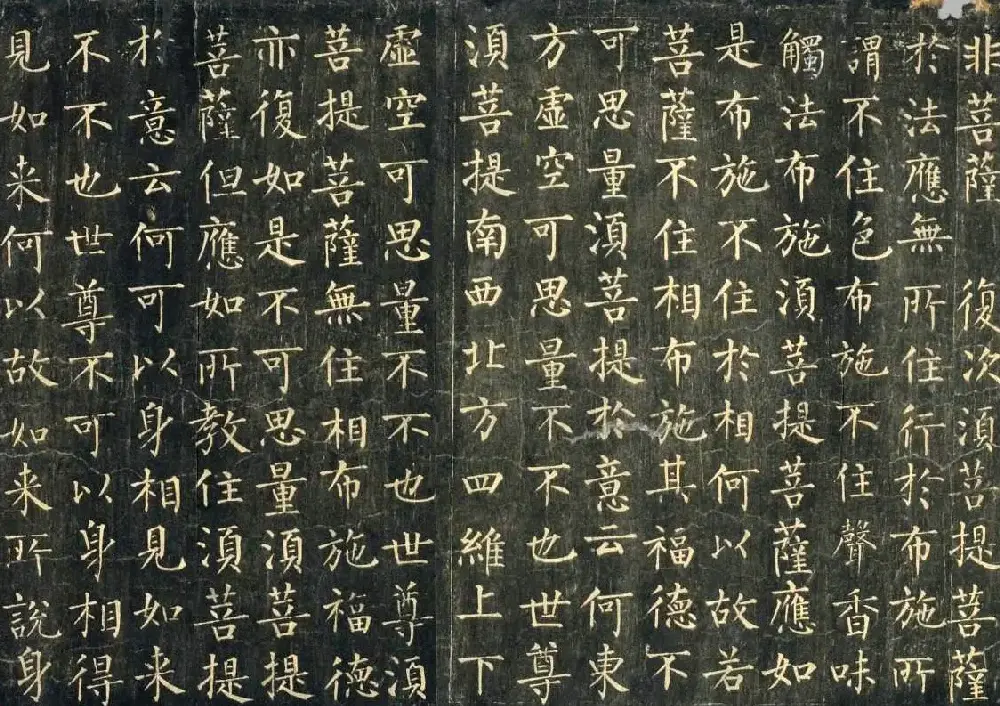 非菩薩　復次須菩提菩薩
於法應無所住行於布施所
謂不住色布施不住聲香味
觸法布施須菩提菩薩應如
是布施不住於相何以故若
菩薩不住相布施其福德不
可思量須菩提於意云何東
方虛空可思量不不也世尊
須菩提南西北方四維上下
虛空可思量不不也世尊須
菩提菩薩無住相布施福德
亦復如是不可思量須菩提
菩薩但應如所教住須菩提
於意云何可以身相見如来
不不也世尊不可以身相得
見如来何以故如来所說身